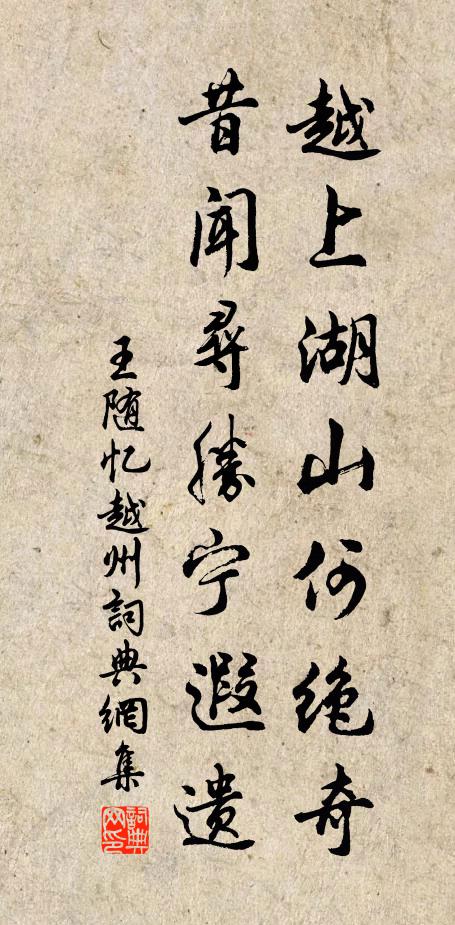 越上湖山何绝奇
昔闻寻勝宁遐遗
王随忆越州詞典網集
詞典网印